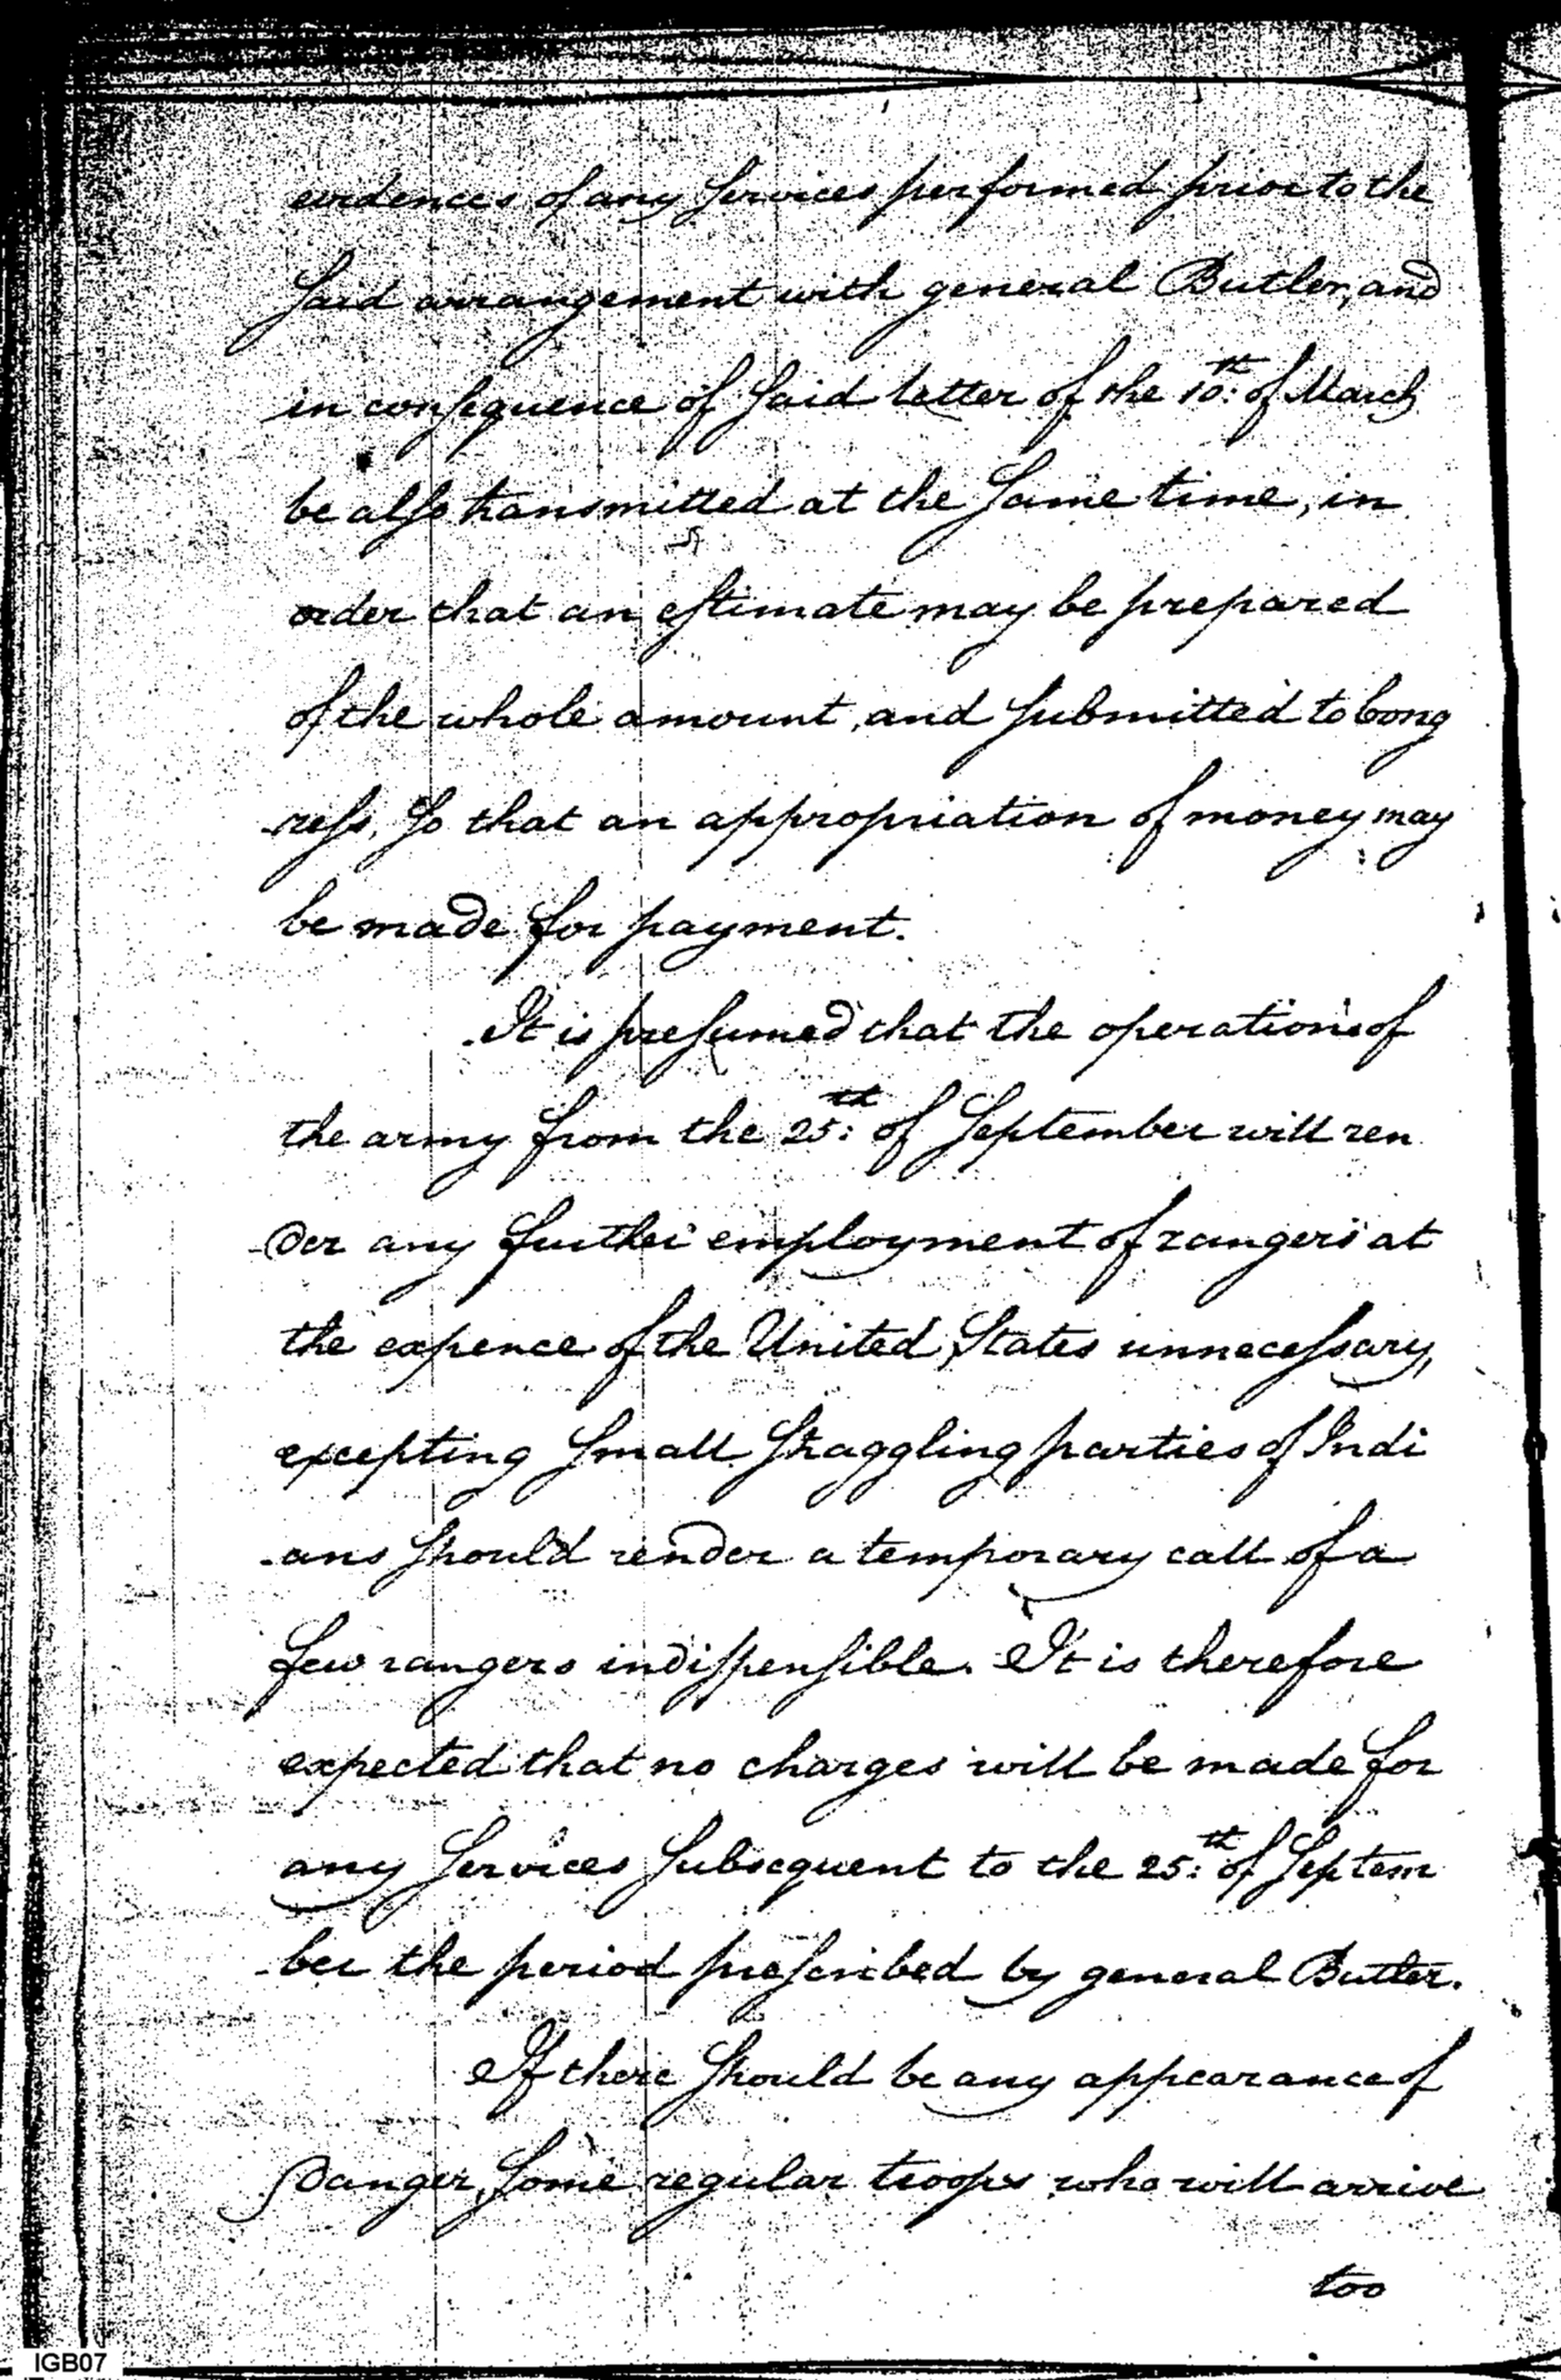 evidences of any services performed prior to the
said arrangement with general Butler, and
in consequence of said letter of the 10th: of March
be also transmitted at the same time, in
order that an estimate may be prepared
of the whole amount, and submitted to Cong
-ress, so that an appropriation of money may
be made for payment.
It is presumed that the operations of
the army from the 25th: of September will ren
-der any further employment of rangers at
the expence of the United States unnecessary,
excepting small straggling parties of Indi
-ans should render a temporary call of a
few rangers indispensible. It is therefore
expected that no charges will be made for
any services subsequent to the 25th: of Septem
-ber the period prescribed by general Butler.
If there should be any appearance of
danger, some regular troops who will arrive
too
IGB07